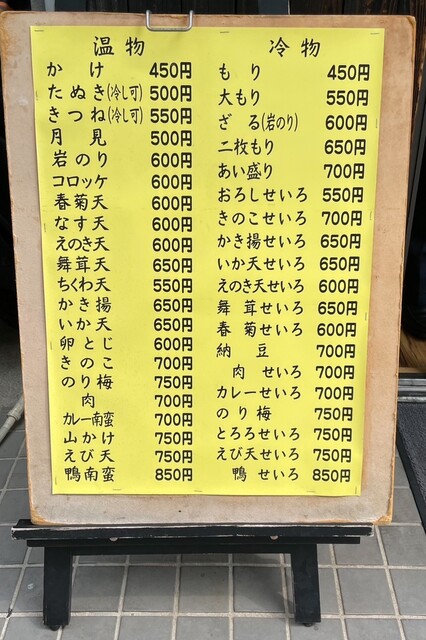 温物
かけ 450円
たぬき(冷し可) 500円
きつね(冷し可) 550円
月見 500円
岩のり 600円
コロッケ 600円
春菊天 600円
なす天 600円
えのき天 600円
舞茸天 650円
ちくわ天 550円
かき揚 650円
いか天 650円
卵とじ 600円
きのこ 700円
のり梅 750円
肉 700円
カレー南蛮 700円
山かけ 750円
えび天 750円
鴨南蛮 850円
冷物
もり 450円
大もり 550円
ざる(岩のり) 600円
二枚もり 650円
あい盛り 700円
おろしせいろ 550円
きのこせいろ 700円
かき揚せいろ 650円
いか天せいろ 650円
えのき天せいろ 600円
舞茸せいろ 650円
春菊せいろ 600円
納豆 700円
肉せいろ 700円
カレーせいろ 700円
のり梅 750円
とろろせいろ 750円
えび天せいろ 750円
鴨せいろ 850円